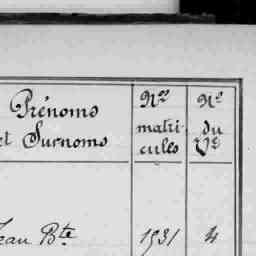 Prénoms
et Surnoms
Nos
matri
cules
No
du
Vo
Jean Bte
1931
4